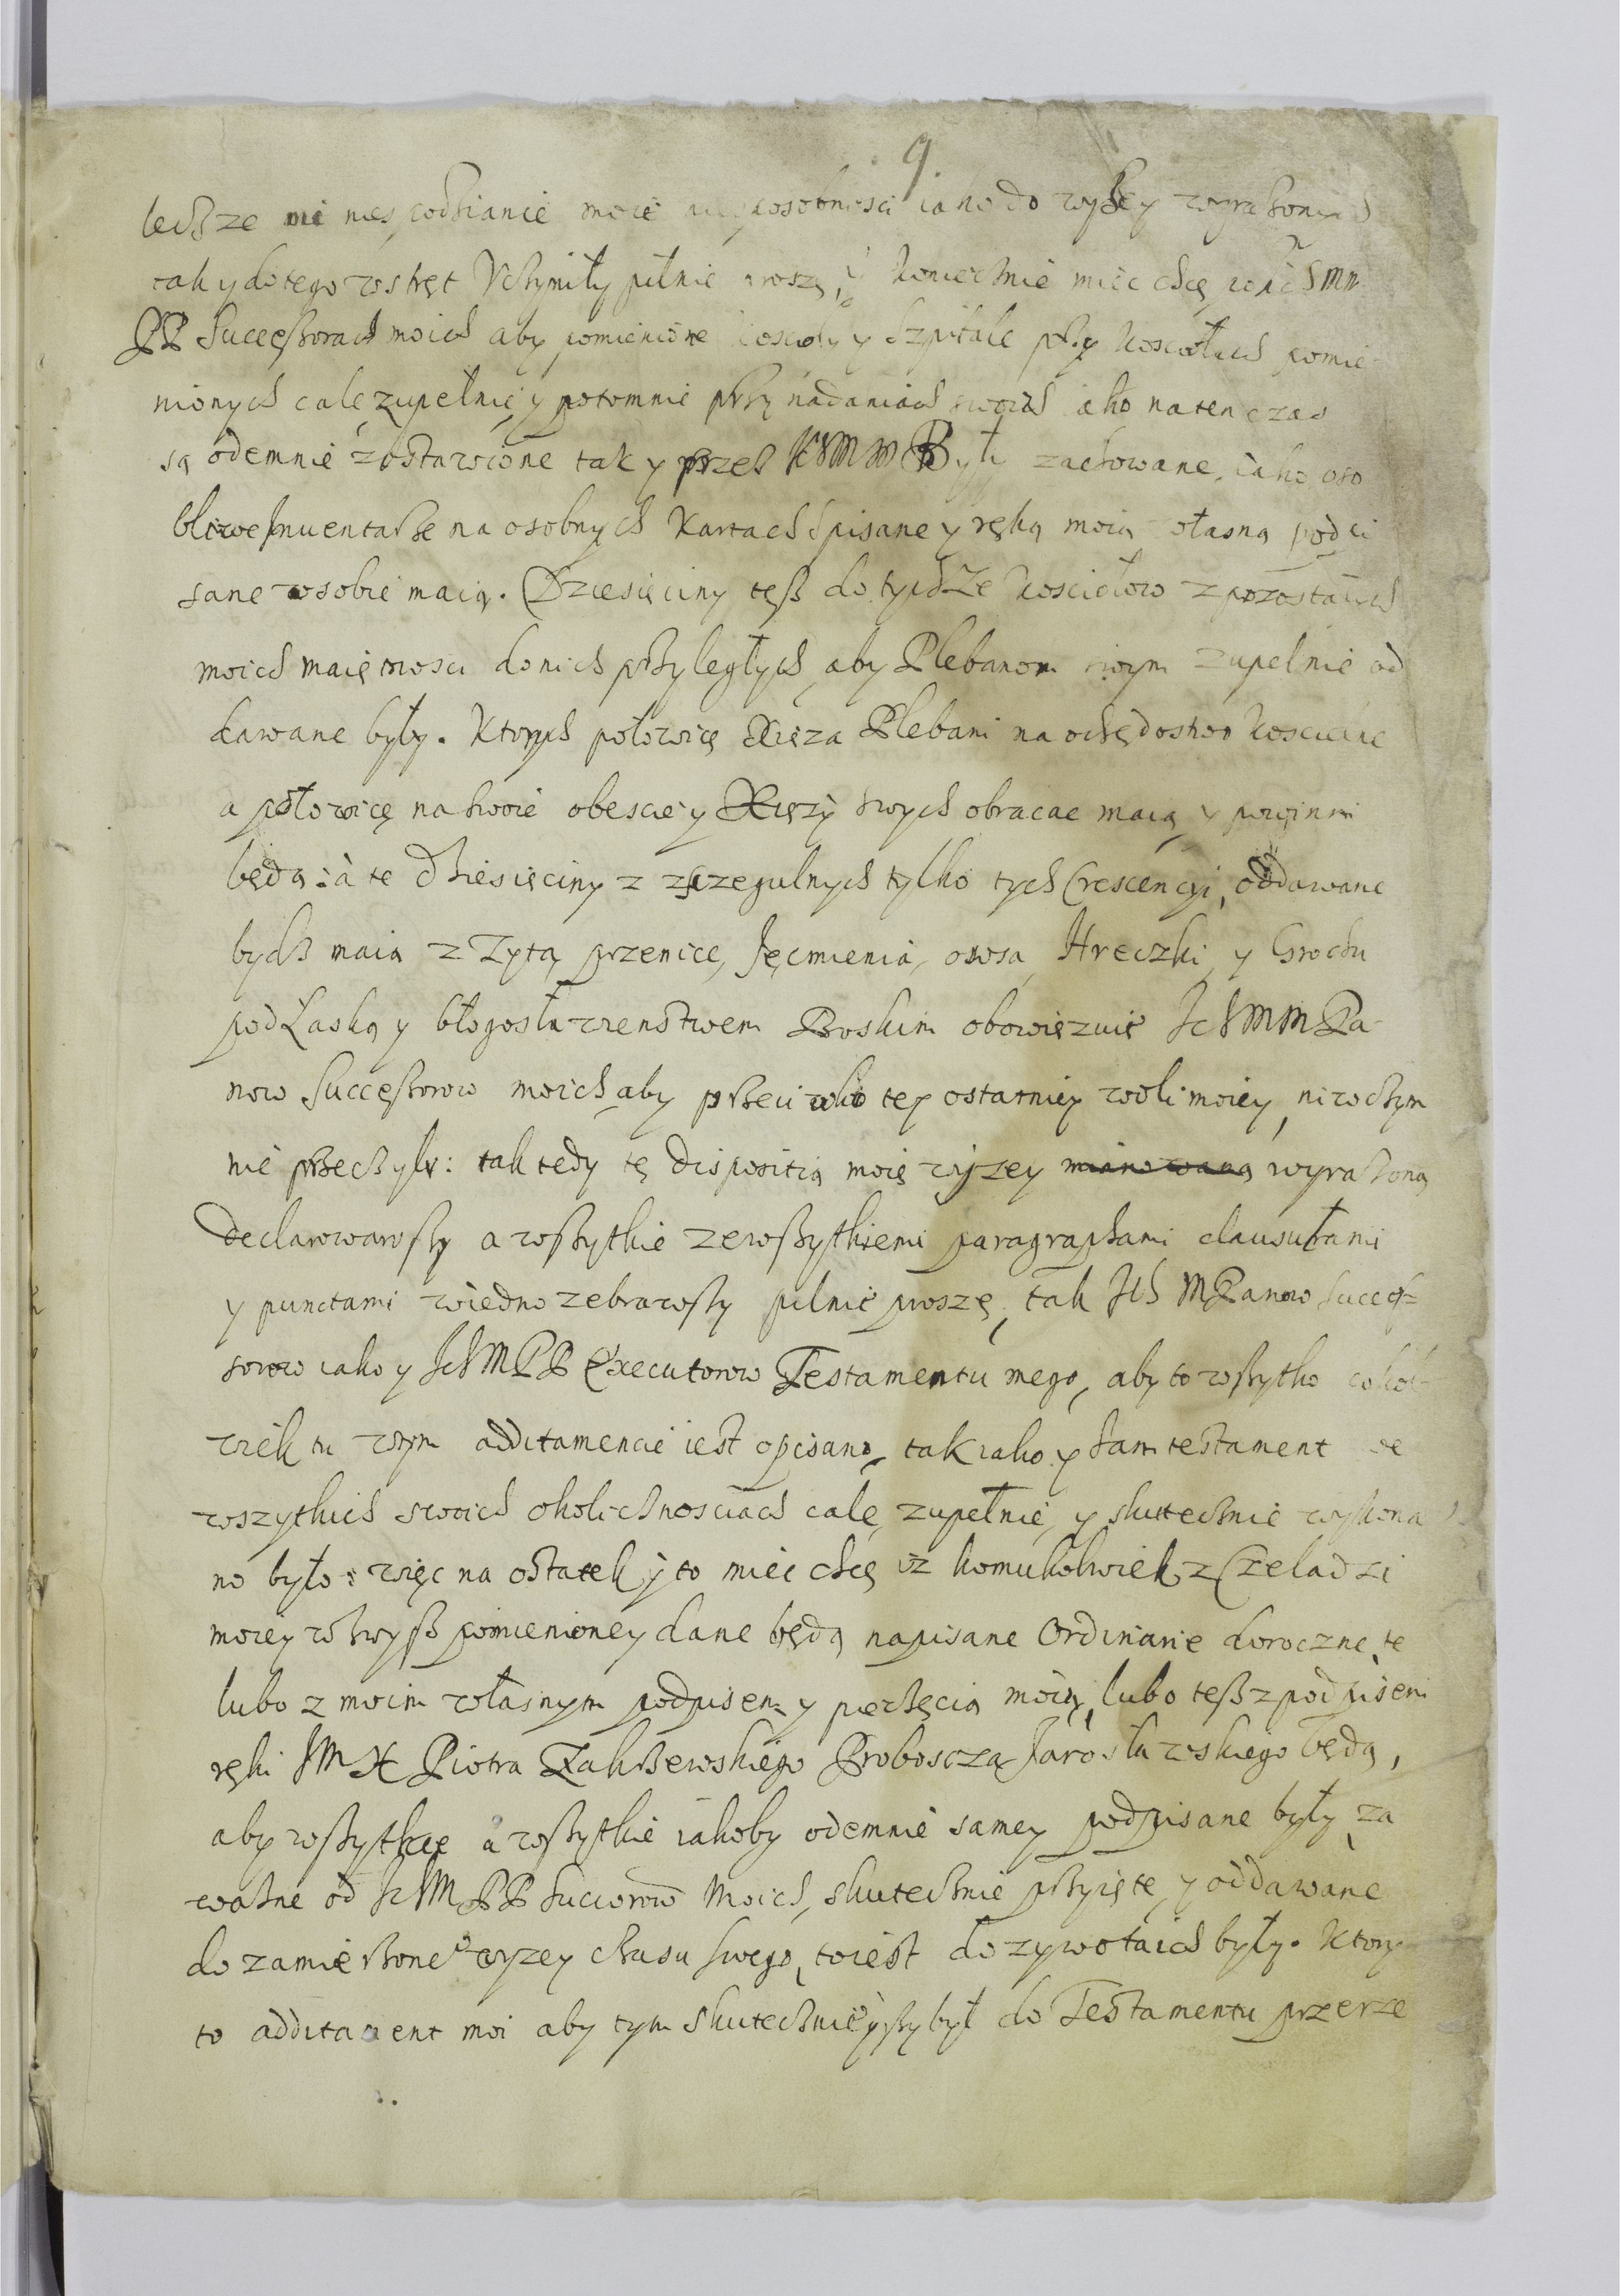 9.
lecż ze mi niespodzianie moie niesposobności iako do wyżey wyrażonych
tak y do tego wstręt Vczyniły pilnie proszę, y koniecznie mieć chcę po IchMM
PP Sukceßorach moich aby pomienione koscioły y Szpitale przy kosciołach pomie
nionych cale, zupełnie, y potomnie przy nadaniach swoich iako na ten czas
są odemnie zostawione tak y przez IchMM Były zachowane, iako oso
bliwe Inuentarze na osobnych Kartach spisane y ręką moią własną podpi
sane w sobie maią. Dziesięciny teß do tychże kosciołow z pozostałych
moich maiętnosci do nich przyległych, aby Plebanom swym zupełnie od
dawane były. Ktorych połowicę Xięza Plebani na ochędostwo koscielne
a połowicę na swoie obescie y Xięży swych obracac maią y powinni
będą: à te dziesięciny z szczegulnych tylko tych Crescencyi, oddawane
bydz maią z Zyta, przenice, Jęcmienia, owsa, Hreczki, y Grochu
pod Łaską y błogosławienstwem Boskim obowięzuię IchMM Pa
now Succeßorow moich, aby przeciwko tey ostatniey woli moiey, ni w czym
nie przeczyli: tak tedy tę dispositią moię wyzey mianowaną wyrażoną
declarowawßy a wßytkie ze wßytkiemi paragraphami clausułami
y punctami wiedno zebrawßy pilnie proszę, tak Ich M Panow Succes=
sorow iako y IchMPP Executorow Testamentu mego, aby to wßytko cokol
wiek tu w tym additamencie iest opisano, tak iako y sam testament we
wszytkich swoich okolicznosciach cale, zupełnie, y skutecznie wykona
no było: więc na ostatek y to mieć chcę iz komukolwiek z Czeladzi
moiey wzwyß pomienioney dane będą napisane Ordinarie doroczne, te
lubo z moim własnym podpisem y pieczęcią moią, lubo teß z podpisem
ręki JMX Piotra Zakrzewskiego Proboscza Jarosławskiego będą,
aby wßytkie a wßytkie iakoby odemnie samey podpisane były, za
ważne od IchMPP Succorow Moich, skutecznie przyięte, y oddawane
do zamierzone° wyzey czasu swego, toiest do zywotaich były. Ktory
to additament moi aby tym skutecznieyßy był do Testamentu przerze